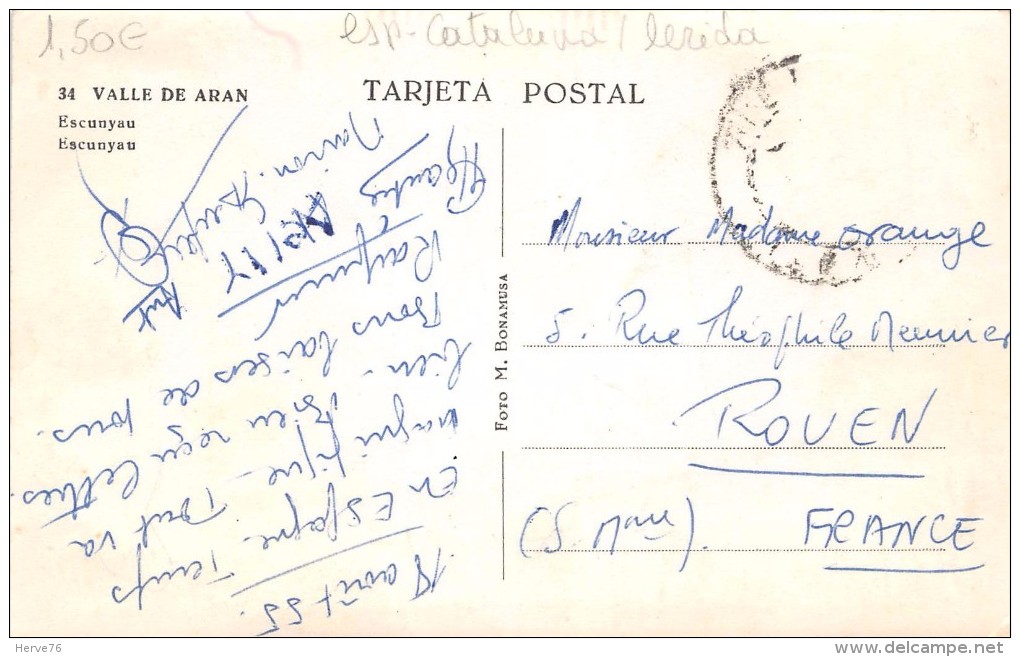 1,50€
esp-Cataluna / lerida
34 VALLE DE ARAN
Escunyau
Escunyau
TARJETA POSTAL
FOTO M. BONAMUSA
Monsieur Madame Orange
5. Rue Théophile Meunier
ROUEN
(S. Mme).
FRANCE
18 août 55.
En Espagne. Temps
magnifique. Tout va
bien. Bien reçu lettres.
Bons baisers de tous.
Herve76
www.delcampe.net